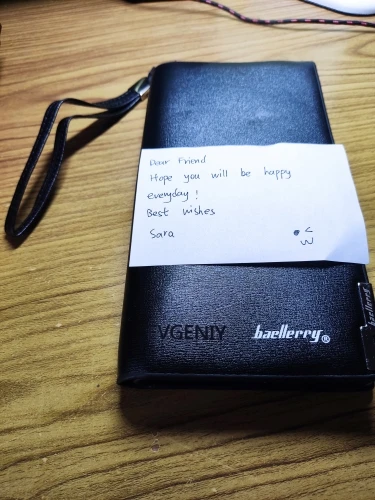 Dear Friend
Hope you will be happy
everyday!
Best wishes
Sara
VGENIY baellerry®
baellerry